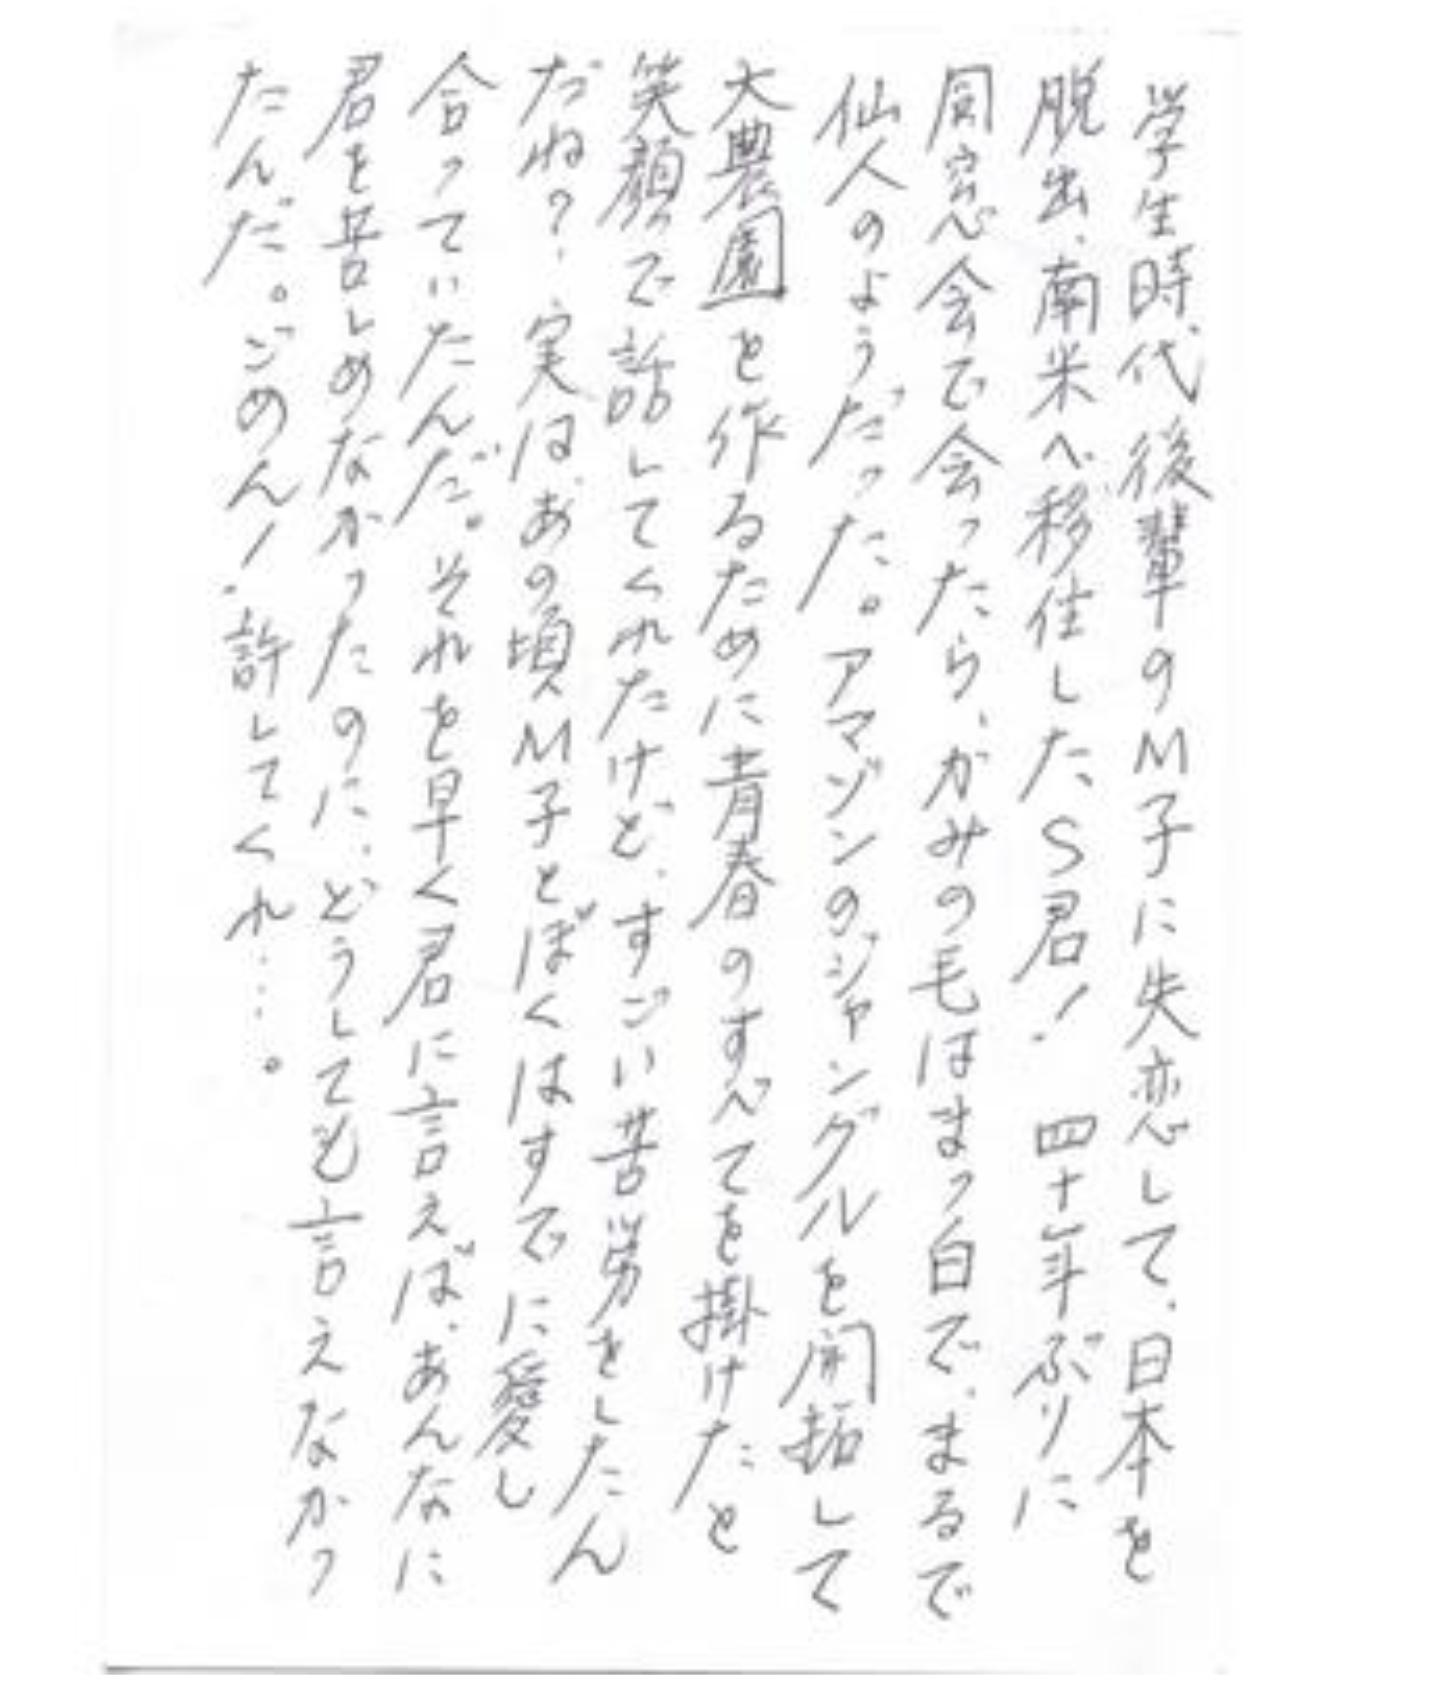 学生時代後輩のM子に失恋して、日本を
脱出、南米へ移住したS君！ 四十年ぶりに
同窓会で会ったら、かみの毛はまっ白で、まるで
仙人のようだった。アマゾンのジャングルを開拓して
大農園を作るために青春のすべてを掛けたと
笑顔で話してくれたけど、すごい苦労をしたん
だね？実は、あの頃M子とぼくはすでに愛し
合っていたんだ。それを早く君に言えば、あんなに
君を苦しめなかったのに、どうしても言えなかっ
たんだ。ごめん！許してくれ…。